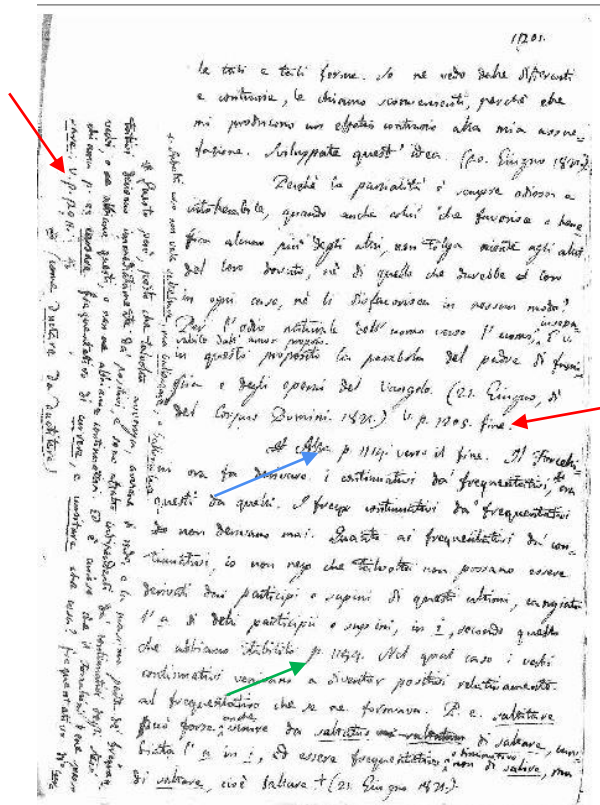 1201.
le tali e tali forme. Se ne vedo delle differenti
e contrarie, le chiamo sconvenienti, perchè che
mi producono un effetto contrario alla mia assue-
fazione. Sviluppate quest' idea. (20. Giugno 1821.)
Perchè la parzialità è sempre odiosa e
intollerabile, quando anche colui che favorisce o benefica
alcuno più degli altri, non tolga niente agli altri
del loro dovuto, nè di quello che darebbe ad loro
in ogni caso, nè li disfavorisca in nessun modo?
Per l'odio naturale dell' uomo verso l' uomo, V.
in questo proposito la parabola del padre di fami-
glia e degli operai del Vangelo. (21. Giugno, dì
del Corpus Domini. 1821.) V. p. 1205. fine.
Al p. 1119. verso il fine. Il Forcelli-
ni ora fa derivare i continuativi da' frequentativi, ora
questi da quelli. I continuativi da' frequentativi
non derivano mai. Quanto ai frequentativi da' con-
tinuativi, io non nego che talvolta non possano essere
derivati dai participi o supini di questi ultimi, cangiato
l' a di detti participii o supini, in i, secondo quello
che abbiamo stabilito p. Nel qual caso i verbi
continuativi verrebbero a diventar positivi relativamente
al frequentativo che se ne formava. P. e. salitare
può forse venire da saltatus di saltare, cam-
biata l' a in i, ed essere frequentativo non di salire, ma
di saltare, cioè saltare + (21. Giugno 1821.)
Questo però posto che talvolta avvenga, avviene di rado, e la massima parte de' frequen-
tativi derivano immediatamente da' positivi, e sono affatto indipendenti da' continuativi degli stessi
verbi, o ne abbiano questi, o non ne abbiano continuativi. Ed è curioso che il Forcellini
chiama cursare frequentativo di currere, e cursitare che cosa? frequentativo di
V. p.
(come ductare da ductitare)